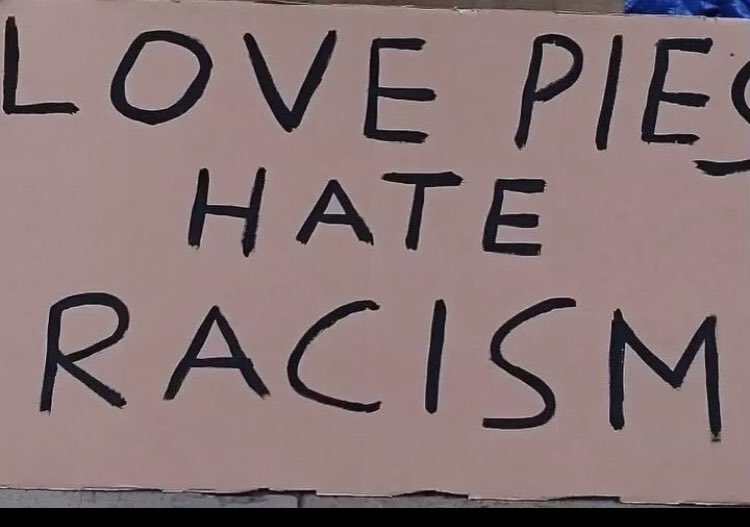 LOVE PIES
HATE
RACISM